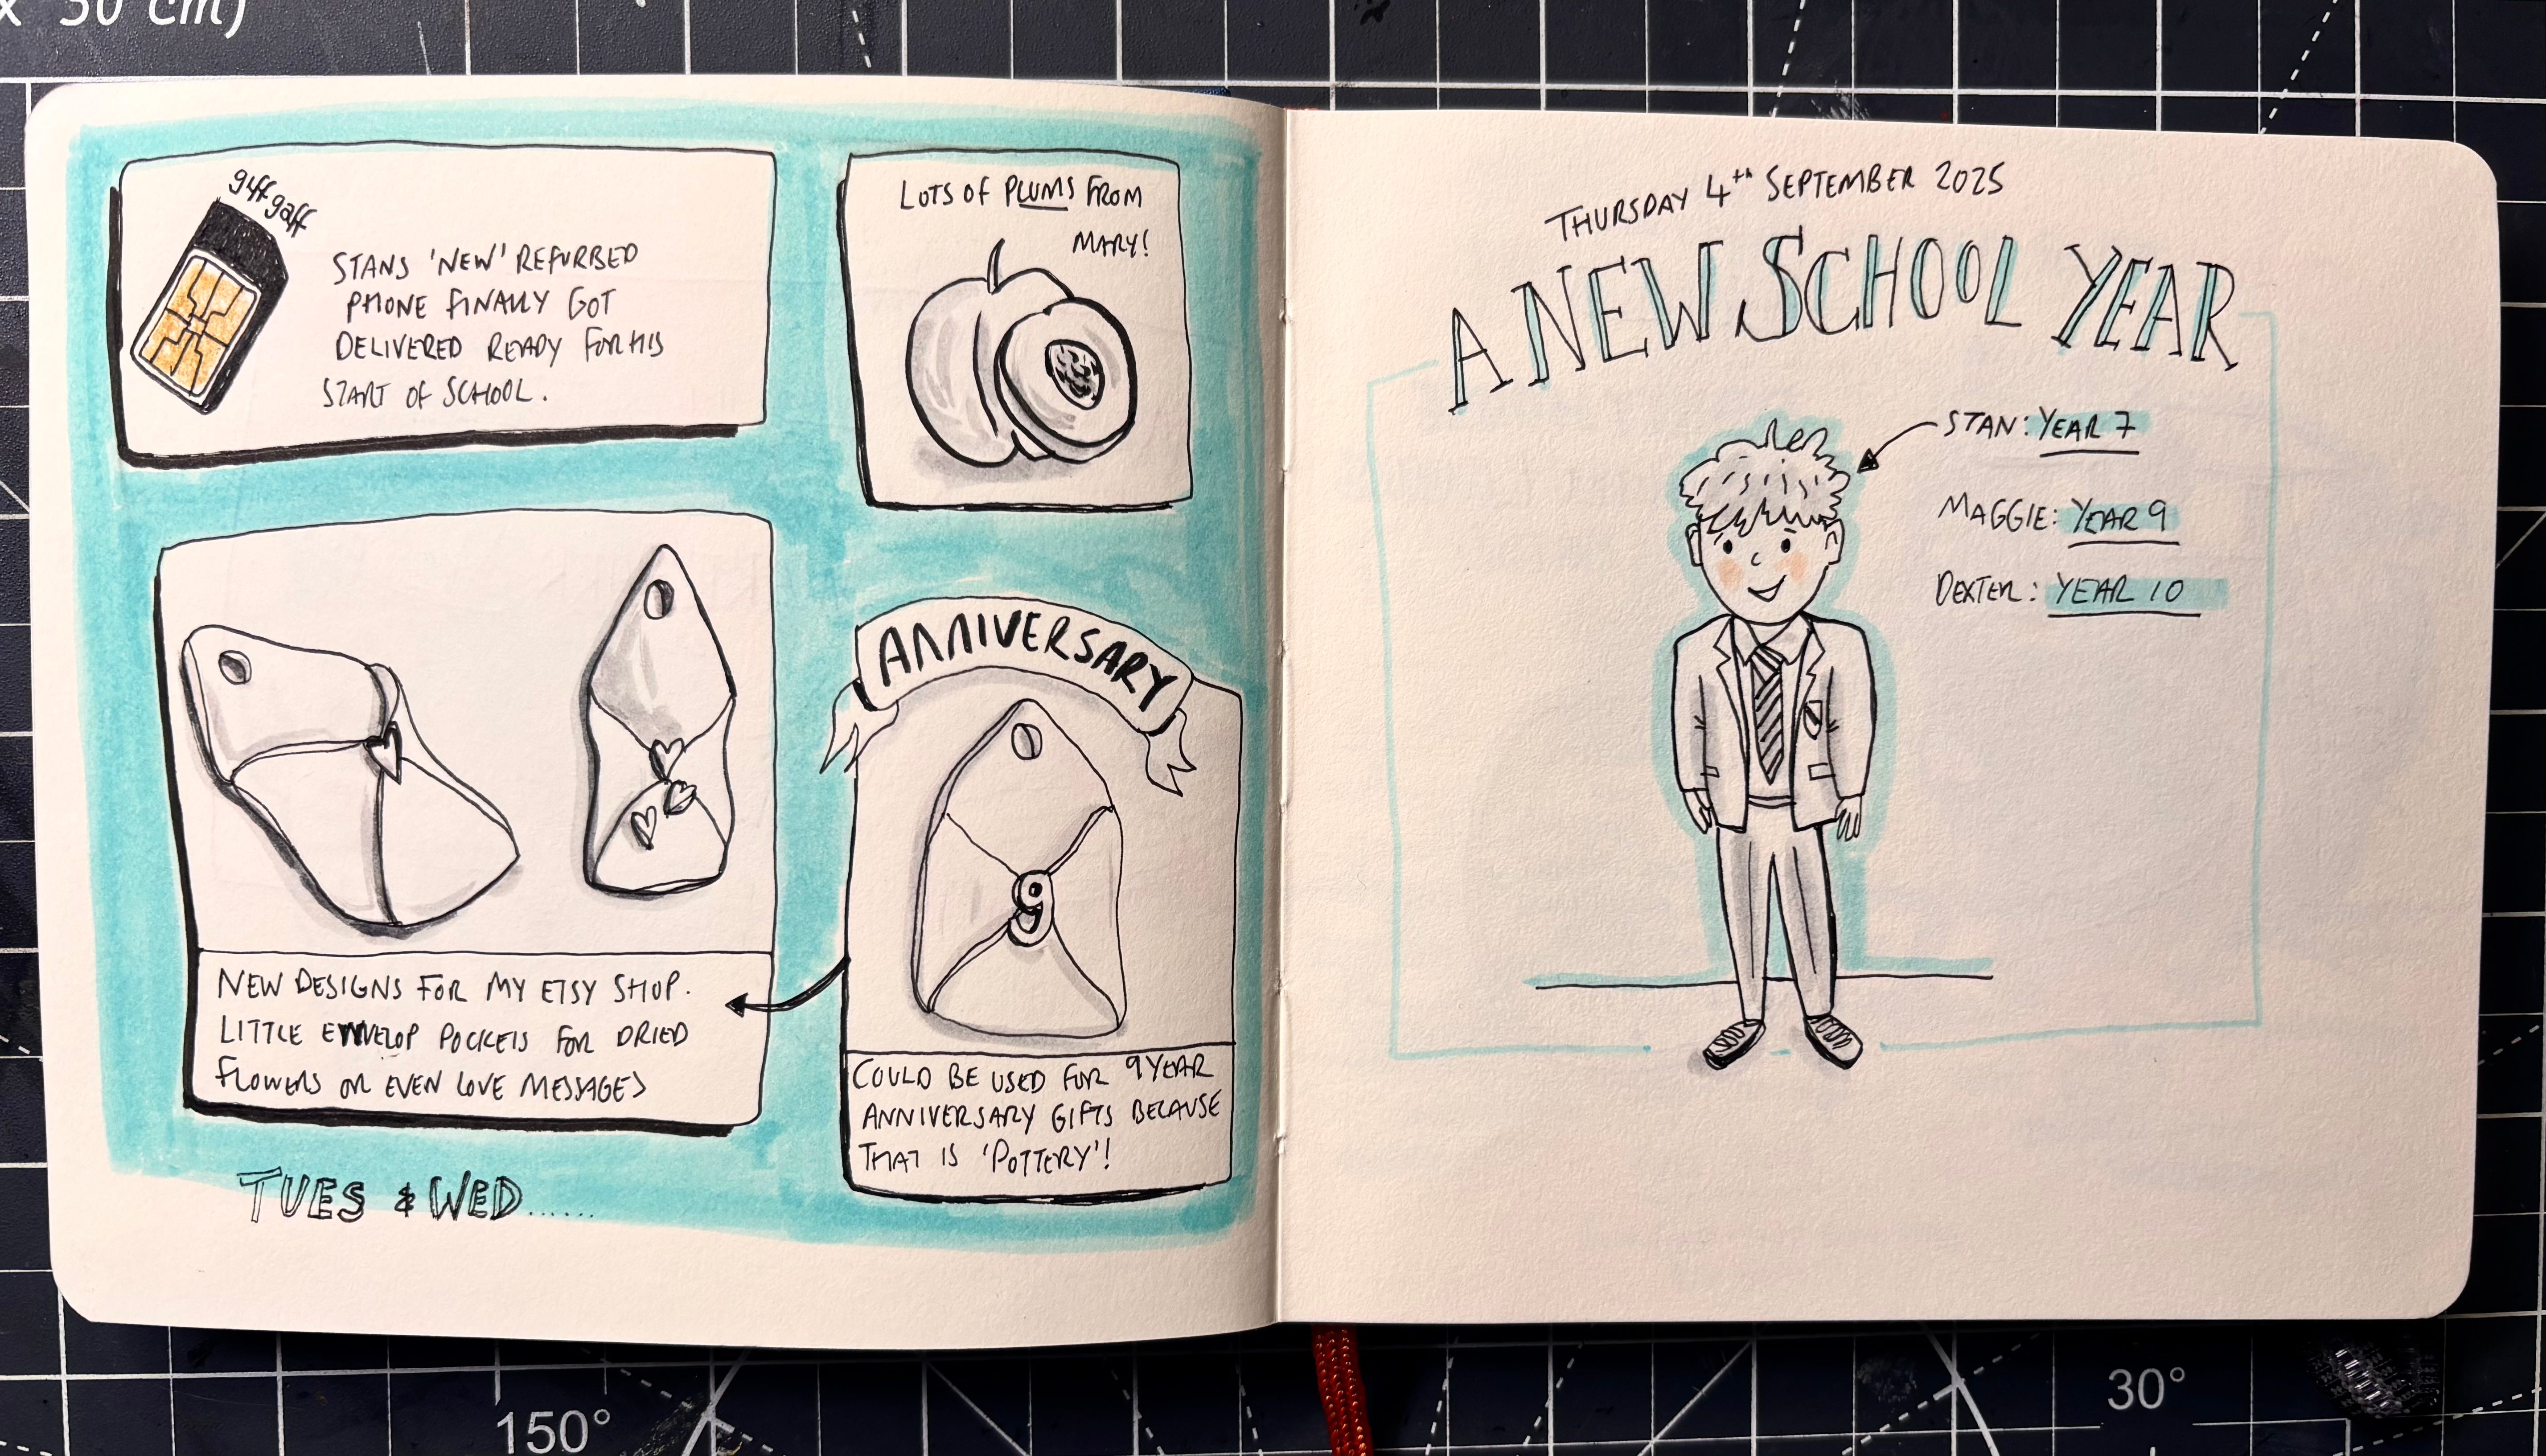 x 30 cm)
giffgaff
STANS 'NEW' REFURBED
PHONE FINALLY GOT
DELIVERED READY FOR HIS
START OF SCHOOL.
LOTS OF PLUMS FROM
MARY!
NEW DESIGNS FOR MY ETSY SHOP.
LITTLE ENVELOP POCKETS FOR DRIED
FLOWERS OR EVEN LOVE MESSAGES
ANNIVERSARY
9
COULD BE USED FOR 9 YEAR
ANNIVERSARY GIFTS BECAUSE
THAT IS 'POTTERY'!
TUES & WED......
THURSDAY 4th SEPTEMBER 2025
A NEW SCHOOL YEAR
STAN: YEAR 7
MAGGIE: YEAR 9
DEXTER: YEAR 10
150°
30°